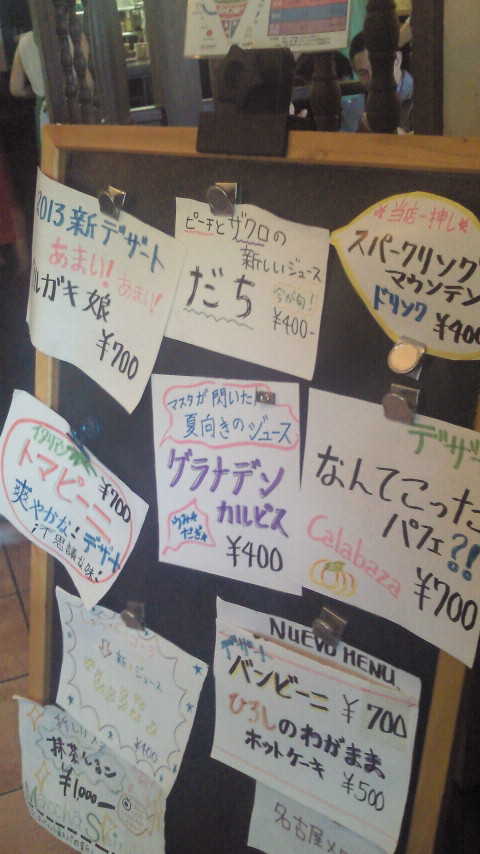 2013 新デザート
あまい! あまい!
ルガキ 娘
¥700
ピーチとザクロの
新しいジュース
だち
今が旬!
¥400-
当店一押し
スパークリング
マウンテン
ドリンク ¥400
イタリアン
トマピーニ
¥700
爽やかな! デザート
不思議な味!
マスタが閃いた
夏向きのジュース
グラナデン
カルピス
¥400
デザ
なんてこった
パフェ?!
Calabaza
¥700
新 ジュース
¥400
NUEVO MENU
デザート
バンビーニ ¥700
ひろしのわがまま
ホットケーキ ¥500
抹茶
¥1000-
Maccha
名古屋メ